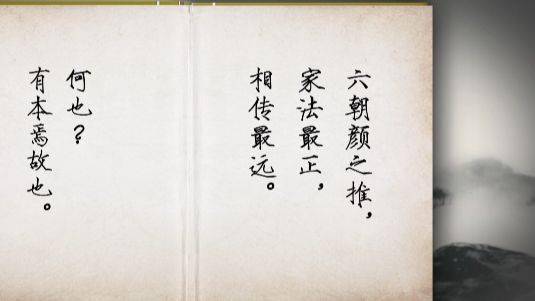 六朝颜之推，
家法最正，
相传最远。
何也？
有本焉故也。